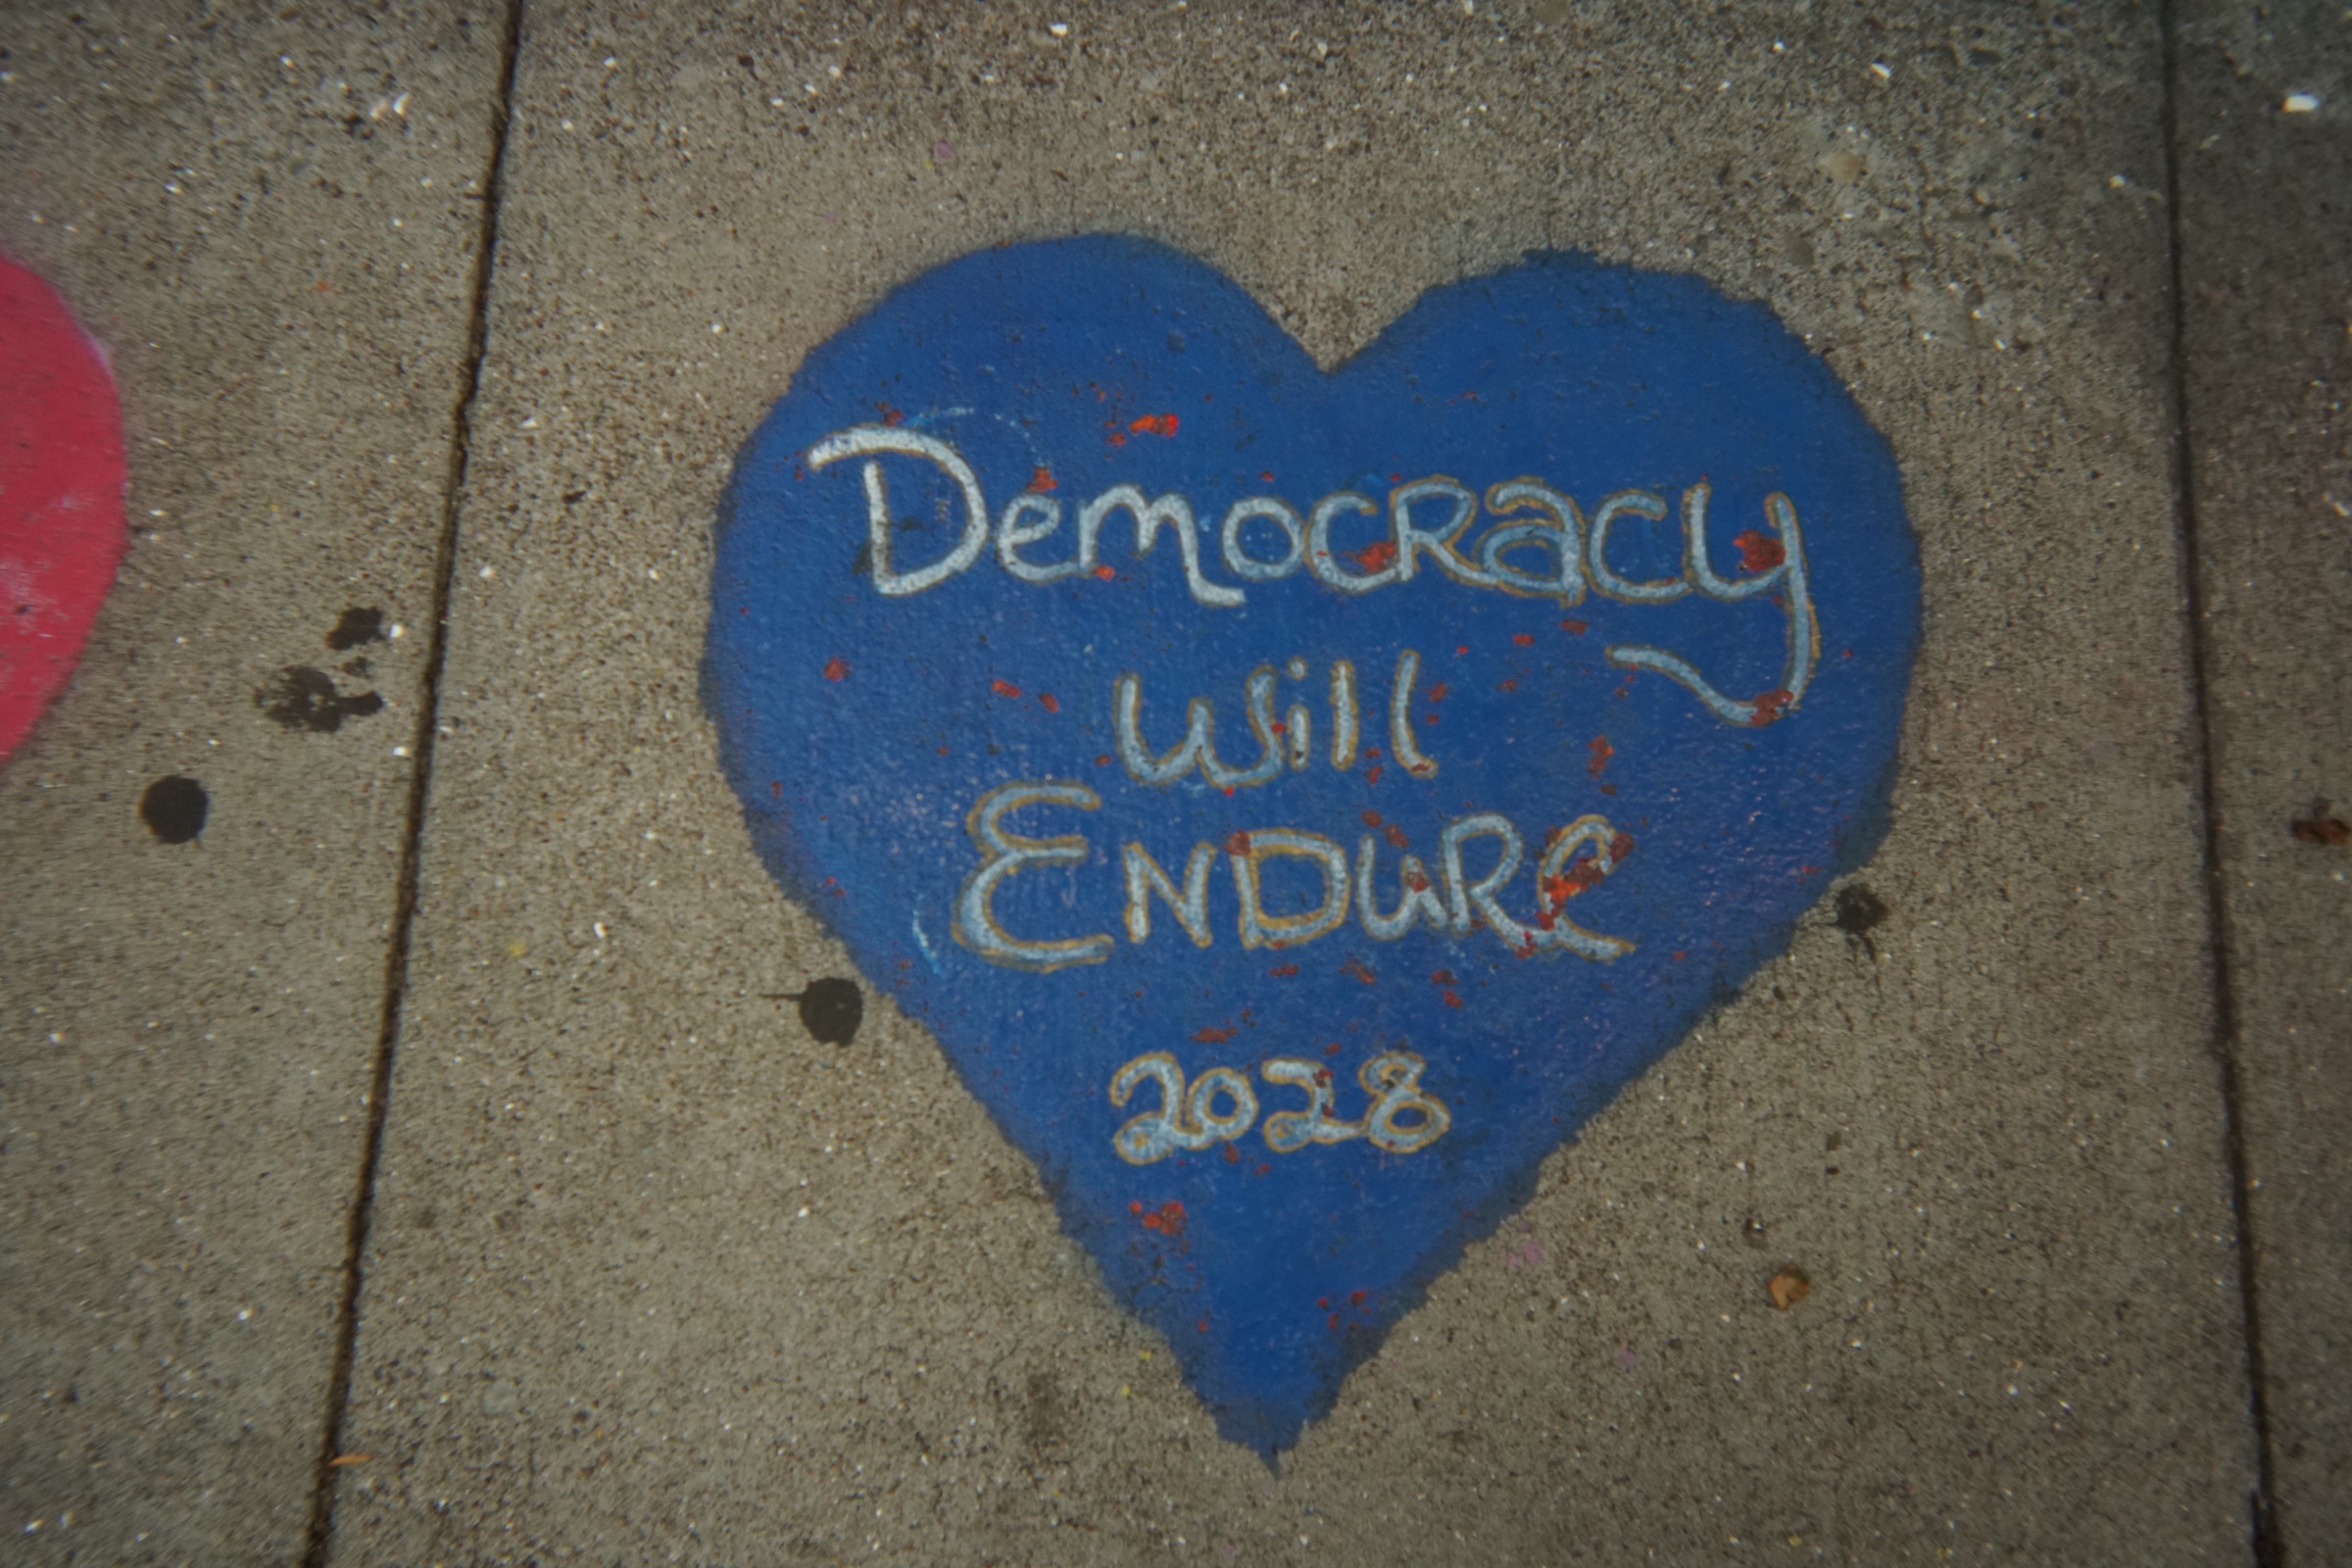 Democracy
will
ENDURE
2028